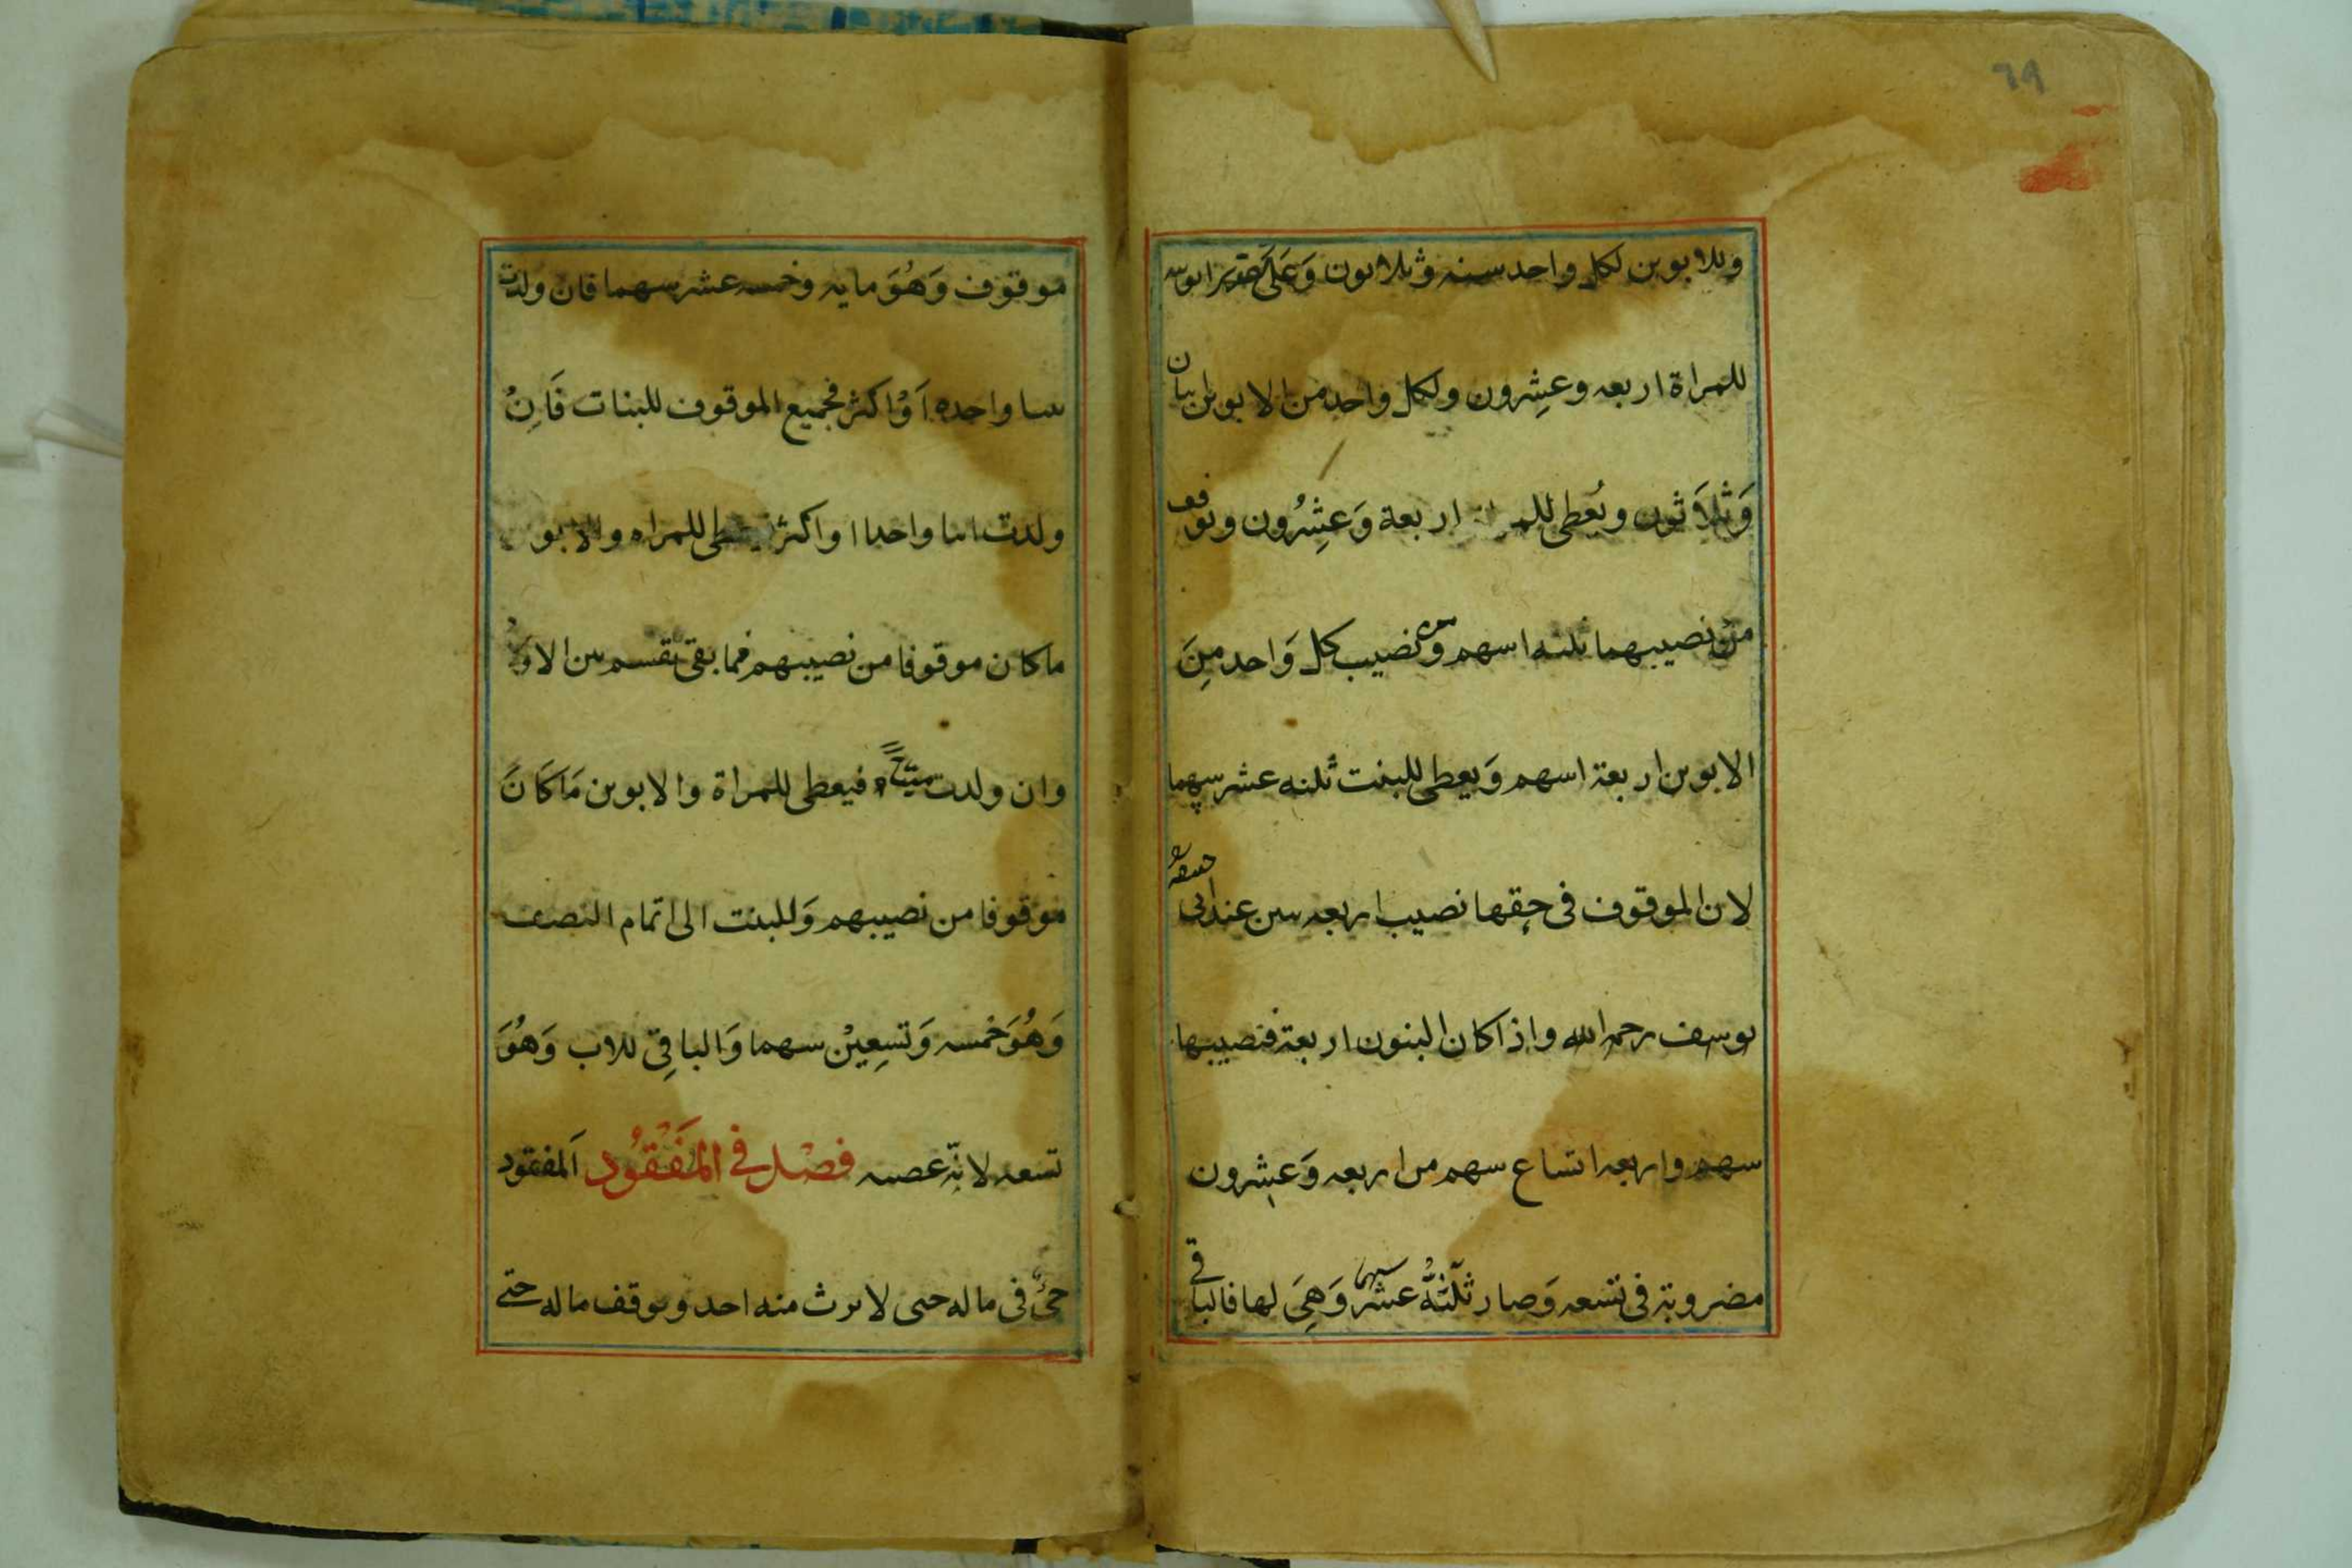 ٦٩
وللابوين لكل واحد سته وثلاثون وَعَلَى تقدير انوثته
للمراة اربعه وعِشرون ولكل واحد من الابوين اثنان
وَثلاَثون ويُعطى للمراة اربعة وَعِشرُون وتوقف
من نصيبهما ثلثه اسهم ومن نصيب كل وَاحد مِنَ
الابوين اربعة اسهم وَيعطى للبنت ثلثه عشر سهما
لان الموقوف فى حقها نصيب اربعه بنين عند ابى حنيفه
يوسف رحمه الله واذا كان البنون اربعة فنصيبها
سهم واربعه اتساع سهم من اربعه وَعشرون
مضروبة فى تسعه وَصار ثلثَةُ عشر سهما وَهِيَ لها فالباقي
موقوف وَهُوَ مايه وخمسه عشر سهما فان ولدت
بنتا واحده اَوْ اكثر فجميع الموقوف للبنات فَاِنْ
ولدت ابنا واحدا او اكثر فيعطى للمراه والابوين
ما كان موقوفا من نصيبهم فما بقى يقسم بين الاولاد
وان ولدت ميتاً فيعطى للمراة والابوين مَا كَانَ
موقوفا من نصيبهم وَللبنت الى اتمام النصف
وَهُوَ خمسه وَتسعِيْن سهما وَالباقِي للاب وَهُوَ
تسعه لانّه عصبه فصْل في المَفْقُود اَلمفقود
حىٌّ فى ماله حتى لا يرث منه احد ويوقف ماله حتى